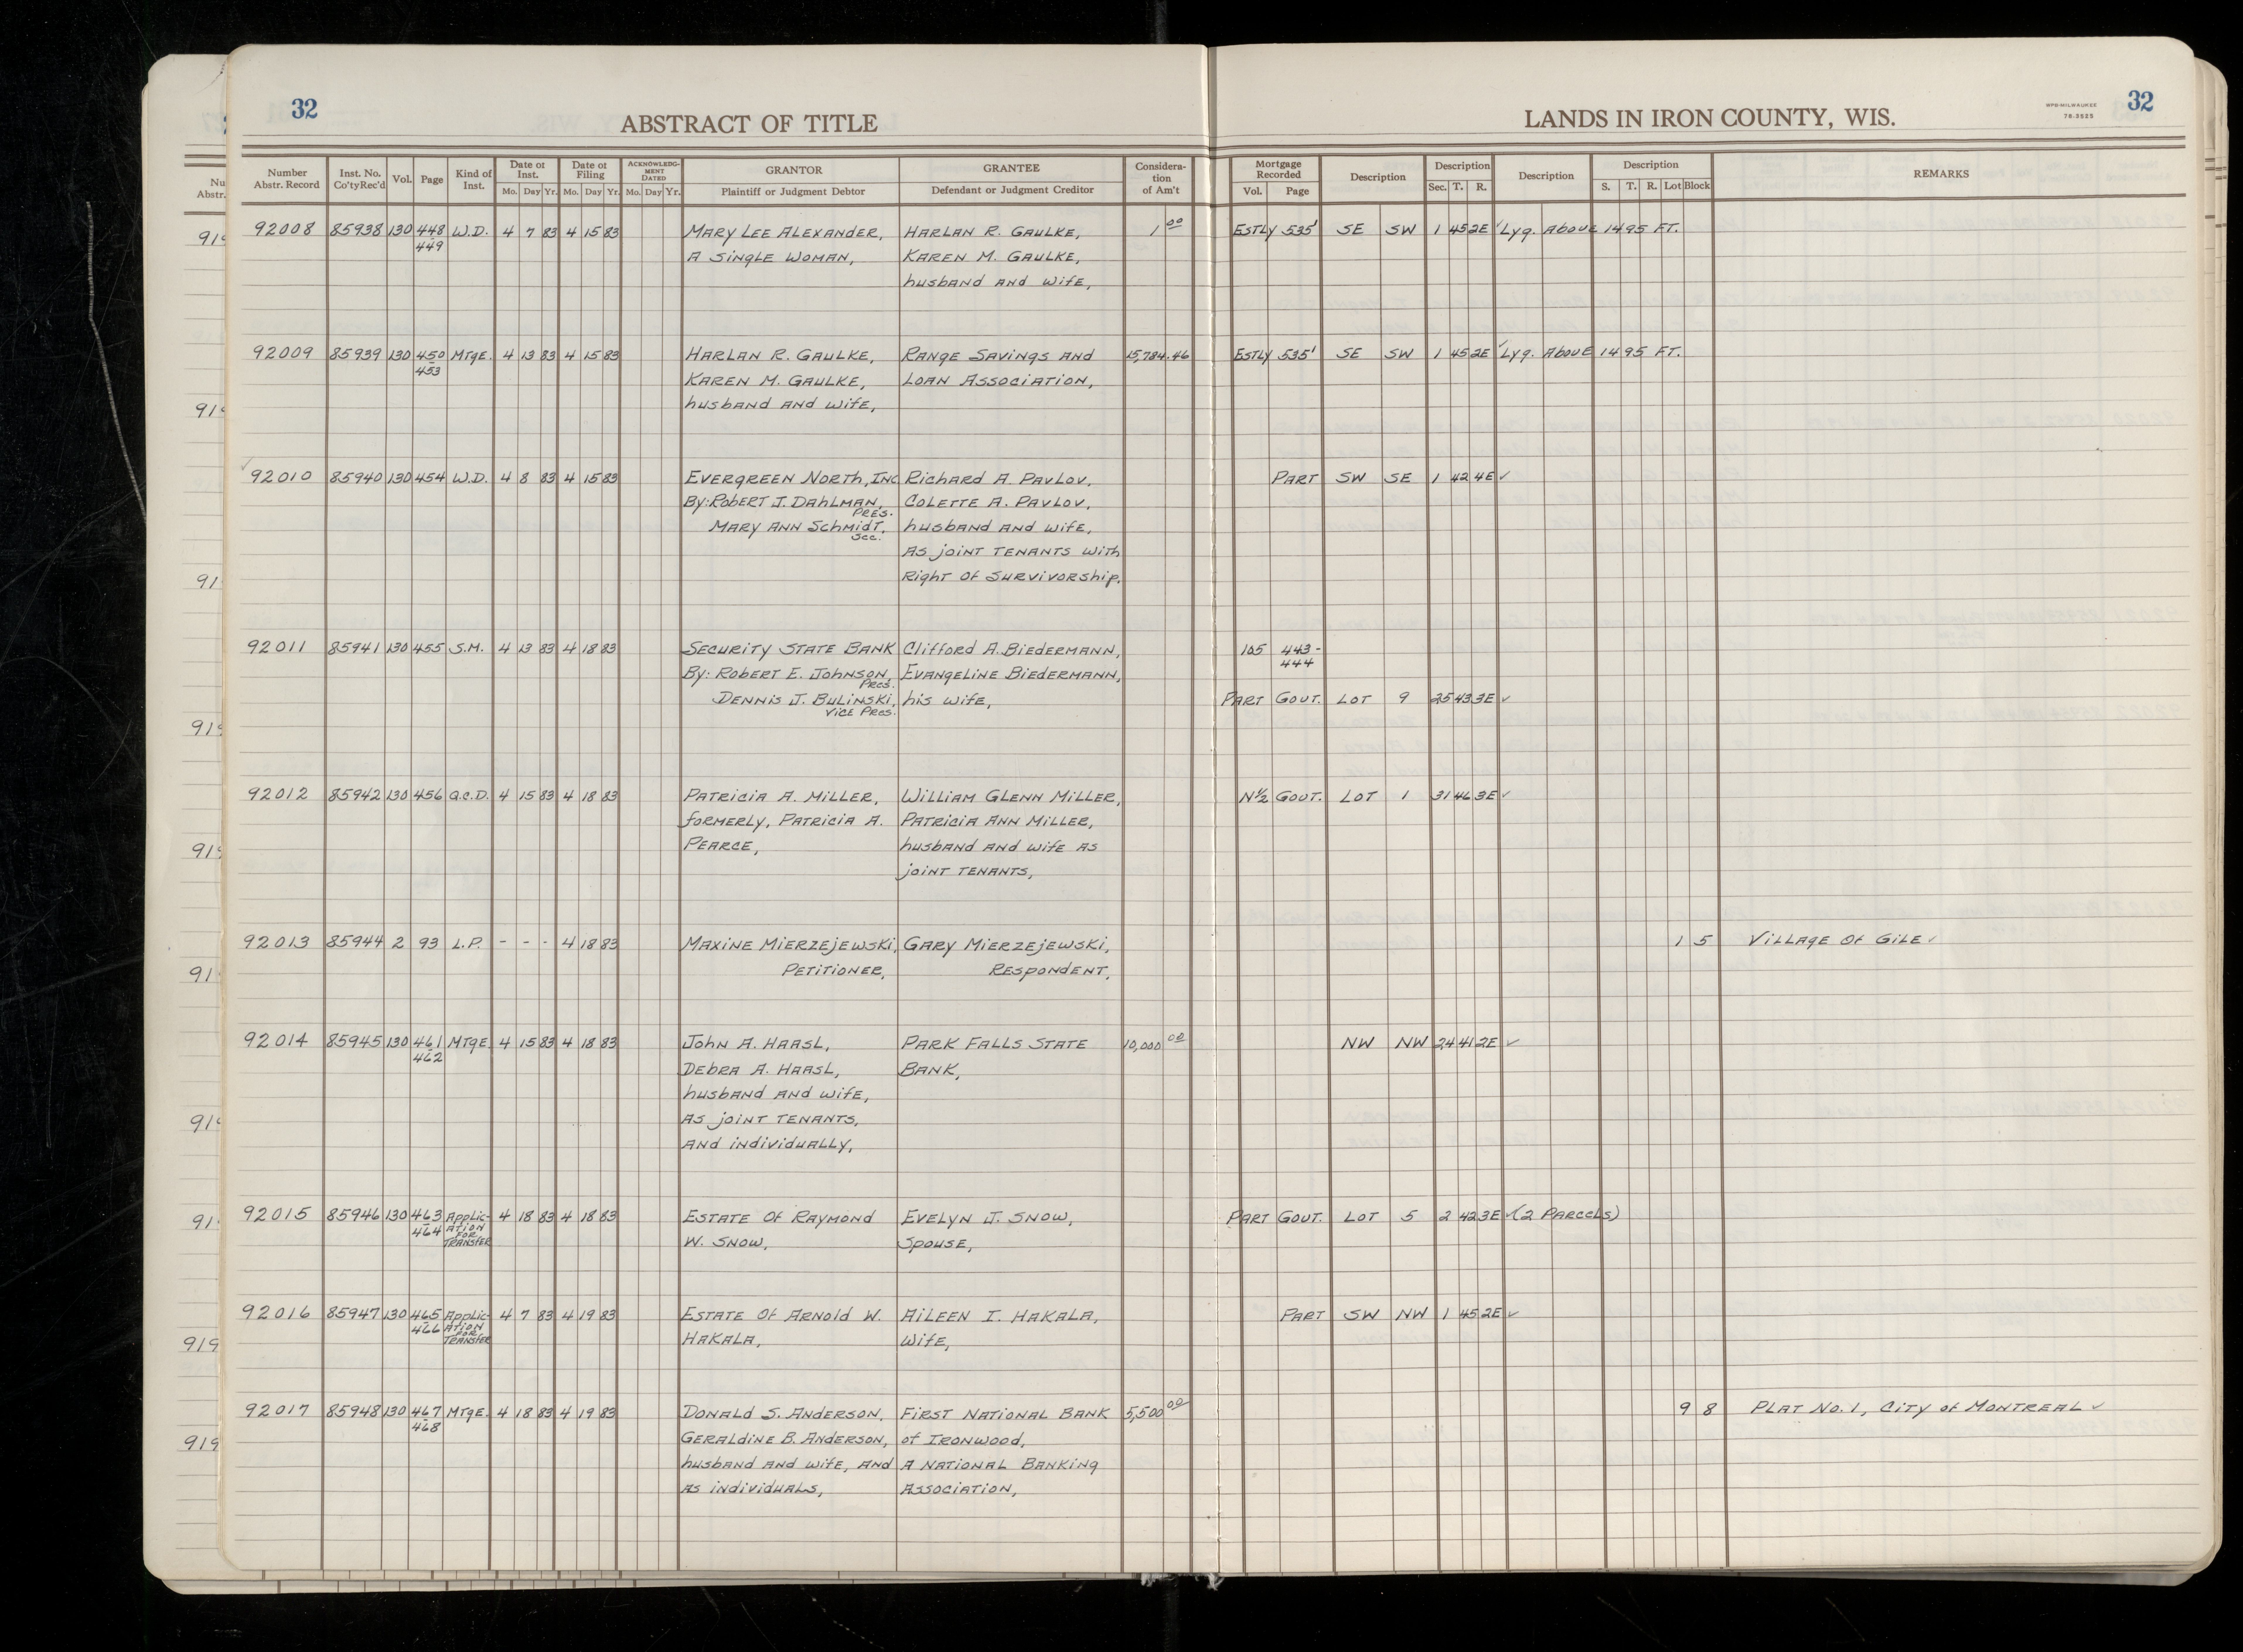 32
ABSTRACT OF TITLE
LANDS IN IRON COUNTY, WIS.
WPB-MILWAUKEE
78-3525
32
Number Abstr. Record | Inst. No. Co'ty Rec'd | Vol. | Page | Kind of Inst. | Date of Inst. Mo. Day Yr. | Date of Filing Mo. Day Yr. | ACKNOWLEDGMENT DATED Mo. Day Yr. | GRANTOR Plaintiff or Judgment Debtor | GRANTEE Defendant or Judgment Creditor | Consideration of Am't | Mortgage Recorded Vol. Page | Description | Description Sec. T. R. | Description | Description S. T. R. Lot Block | REMARKS
92008 85938 130 448 W.D. 4 7 83 4 15 83 MARY LEE ALEXANDER, HARLAN R. GAULKE, 1 00 ESTLY 535' SE SW 1 45 2E ✓ Lyg. Above 1495 FT.
-449 A SINGLE WOMAN, KAREN M. GAULKE,
husband AND WIFE,
92009 85939 130 450 MTGE. 4 13 83 4 15 83 HARLAN R. GAULKE, RANGE SAVINGS AND 15,784.46 ESTLY 535' SE SW 1 45 2E ✓ Lyg. Above 1495 FT.
-453 KAREN M. GAULKE, LOAN ASSOCIATION,
husband AND WIFE,
✓ 92010 85940 130 454 W.D. 4 8 83 4 15 83 EVERGREEN NORTH, INC Richard A. PAVLOV, PART SW SE 1 42 4E ✓
By: ROBERT J. DAHLMAN, PRES. COLETTE A. PAVLOV,
MARY ANN SCHMIDT, Sec. husband AND WIFE,
AS JOINT TENANTS WITH
Right OF SURVIVORSHIP,
92011 85941 130 455 S.M. 4 13 83 4 18 83 SECURITY STATE BANK Clifford A. BIEDERMANN, 105 443-
By: ROBERT E. JOHNSON, Pres. EVANGELINE BIEDERMANN, 444
DENNIS J. BULINSKI, VICE PRES. his WIFE, PART GOUT. LOT 9 25 43 3E ✓
92012 85942 130 456 Q.C.D. 4 15 83 4 18 83 PATRICIA A. MILLER, WILLIAM GLENN MILLER, N½ GOUT. LOT 1 31 46 3E ✓
FORMERLY, PATRICIA A. PATRICIA ANN MILLER,
PEARCE, husband AND WIFE AS
JOINT TENANTS,
92013 85944 2 93 L.P. - - - 4 18 83 MAXINE MIERZEJEWSKI, GARY MIERZEJEWSKI, 1 5 VILLAGE OF GILE ✓
PETITIONER, RESPONDENT,
92014 85945 130 461 MTGE. 4 15 83 4 18 83 JOHN A. HAASL, PARK FALLS STATE 10,000 00 NW NW 24 41 2E ✓
-462 DEBRA A. HAASL, BANK,
husband AND WIFE,
AS JOINT TENANTS,
AND INDIVIDUALLY,
92015 85946 130 463 APPLIC- 4 18 83 4 18 83 ESTATE OF RAYMOND EVELYN J. SNOW, PART GOUT. LOT 5 2 42 3E ✓ (2 PARCELS)
-464 ATION FOR TRANSFER W. SNOW, SPOUSE,
92016 85947 130 465 APPLIC- 4 7 83 4 19 83 ESTATE OF ARNOLD W. AILEEN I. HAKALA, PART SW NW 1 45 2E ✓
-466 ATION FOR TRANSFER HAKALA, WIFE,
92017 85948 130 467 MTGE. 4 18 83 4 19 83 DONALD S. ANDERSON, FIRST NATIONAL BANK 5,500 00 9 8 PLAT NO. 1, CITY OF MONTREAL ✓
-468 GERALDINE B. ANDERSON, OF IRONWOOD,
husband AND WIFE, AND A NATIONAL BANKING
AS INDIVIDUALS, ASSOCIATION,